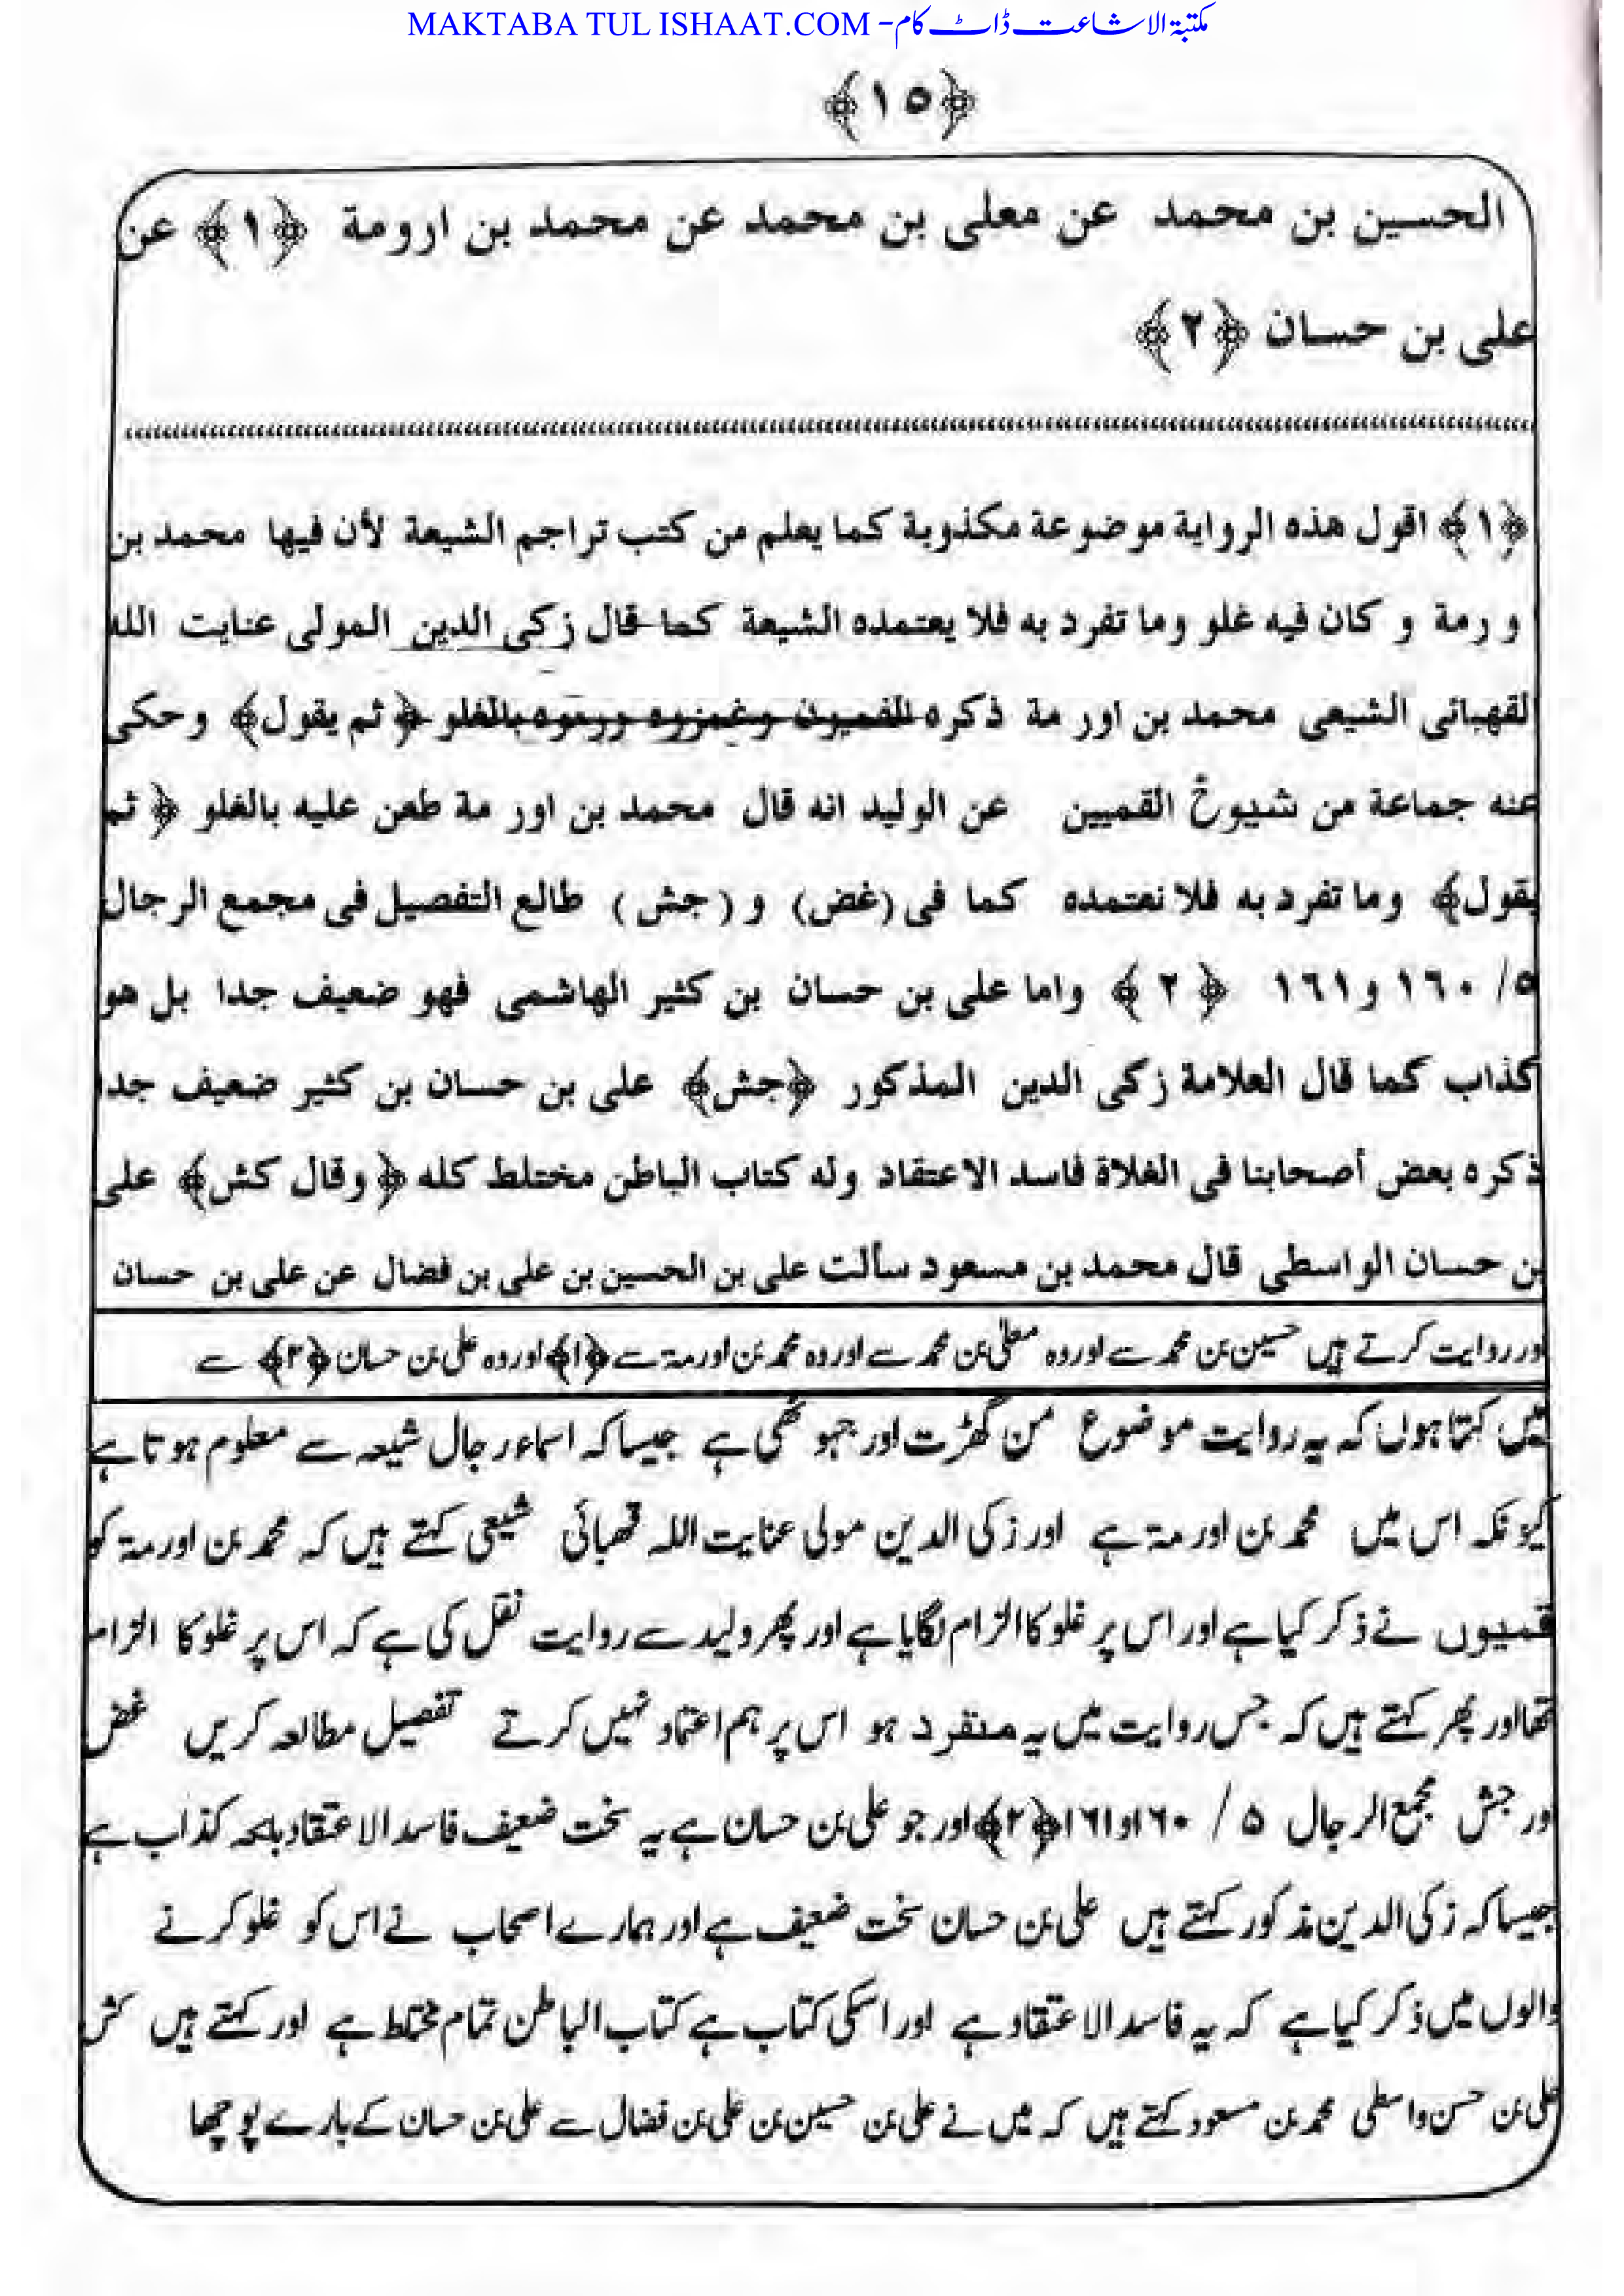 MAKTABA TUL ISHAAT.COM - مکتبۃ الاشاعت ڈاٹ کام
﴿١٥﴾
الحسين بن محمد عن معلى بن محمد عن محمد بن ارومة ﴿١﴾ عن
على بن حسان ﴿٢﴾
﴿١﴾ اقول هذه الرواية موضوعة مكذوبة كما يعلم من كتب تراجم الشيعة لأن فيها محمد بن
ورمة و كان فيه غلو وما تفرد به فلا يعتمده الشيعة كما قال زكى الدين المولى عنايت الله
القهبائى الشيعى محمد بن اور مة ذكره القميون وغمزوه ورموه بالغلو ﴿ ثم يقول﴾ وحكى
عنه جماعة من شيوخ القميين عن الوليد انه قال محمد بن اور مة طعن عليه بالغلو ﴿ ثم
يقول﴾ وما تفرد به فلا نعتمده كما فى (غض) و (جش) طالع التفصيل فى مجمع الرجال
٥/ ١٦٠ و١٦١ ﴿ ٢ ﴾ واما على بن حسان بن كثير الهاشمى فهو ضعيف جدا بل هو
كذاب كما قال العلامة زكى الدين المذكور ﴿جش﴾ على بن حسان بن كثير ضعيف جدا
ذكره بعض أصحابنا فى الغلاة فاسد الاعتقاد وله كتاب الباطن مختلط كله ﴿ وقال كش﴾ على
بن حسان الواسطى قال محمد بن مسعود سألت على بن الحسين بن على بن فضال عن على بن حسان
اور روایت کرتے ہیں حسین بن محمد سے اور وہ معلیٰ بن محمد سے اور وہ محمد بن اورمۃ سے ﴿۱﴾ اور وہ علی بن حسان ﴿۲﴾ سے
میں کہتا ہوں کہ یہ روایت موضوع من گھڑت اور جھوٹھی ہے جیسا کہ اسماء رجال شیعہ سے معلوم ہوتا ہے
کیونکہ اس میں محمد بن اورمۃ ہے اور زکی الدین مولی عنایت اللہ قھبائی شیعی کہتے ہیں کہ محمد بن اورمۃ کو
قمیوں نے ذکر کیا ہے اور اس پر غلو کا الزام لگایا ہے اور پھر ولید سے روایت نقل کی ہے کہ اس پر غلو کا الزام
تھا اور پھر کہتے ہیں کہ جس روایت میں یہ منفرد ہو اس پر ہم اعتماد نہیں کرتے تفصیل مطالعہ کریں غض
اور جش مجمع الرجال ۵ / ۱۶۰ او ۱۶۱ ﴿۲﴾ اور جو علی بن حسان ہے یہ سخت ضعیف فاسد الاعتقاد بلکہ کذاب ہے
جیسا کہ زکی الدین مذکور کہتے ہیں علی بن حسان سخت ضعیف ہے اور ہمارے اصحاب نے اس کو غلو کرنے
والوں میں ذکر کیا ہے کہ یہ فاسد الاعتقاد ہے اور اسکی کتاب ہے کتاب الباطن تمام مختلط ہے اور کہتے ہیں کش
علی بن حسن واسطی محمد بن مسعود کہتے ہیں کہ میں نے علی بن حسین بن علی بن فضال سے علی بن حسان کے بارے پوچھا